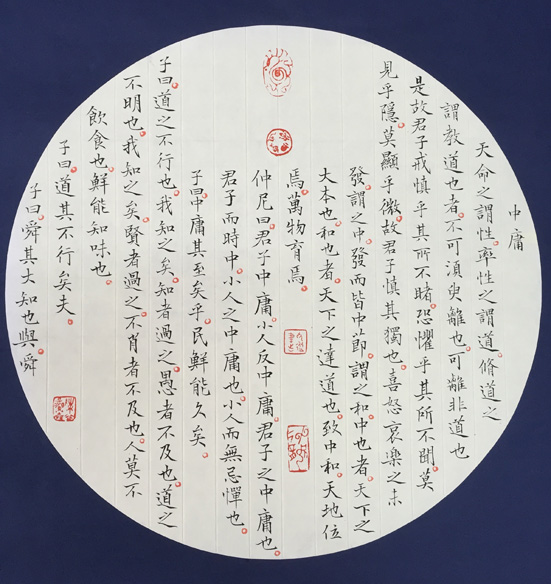 中庸
天命之謂性。率性之謂道。脩道之
謂教。道也者。不可須臾離也。可離非道也
是故君子戒慎乎其所不睹。恐懼乎其所不聞。莫
見乎隱。莫顯乎微。故君子慎其獨也。喜怒哀樂之未
發。謂之中。發而皆中節。謂之和。中也者。天下之
大本也。和也者。天下之達道也。致中和。天地位
焉。萬物育焉。
仲尼曰。君子中庸。小人反中庸。君子之中庸也。
君子而時中。小人之中庸也。小人而無忌憚也。
子曰。中庸其至矣乎。民鮮能久矣。
子曰。道之不行也。我知之矣。知者過之。愚者不及也。道之
不明也。我知之矣。賢者過之。不肖者不及也。人莫不
飲食也。鮮能知味也。
子曰。道其不行矣夫。
子曰。舜其大知也與。舜